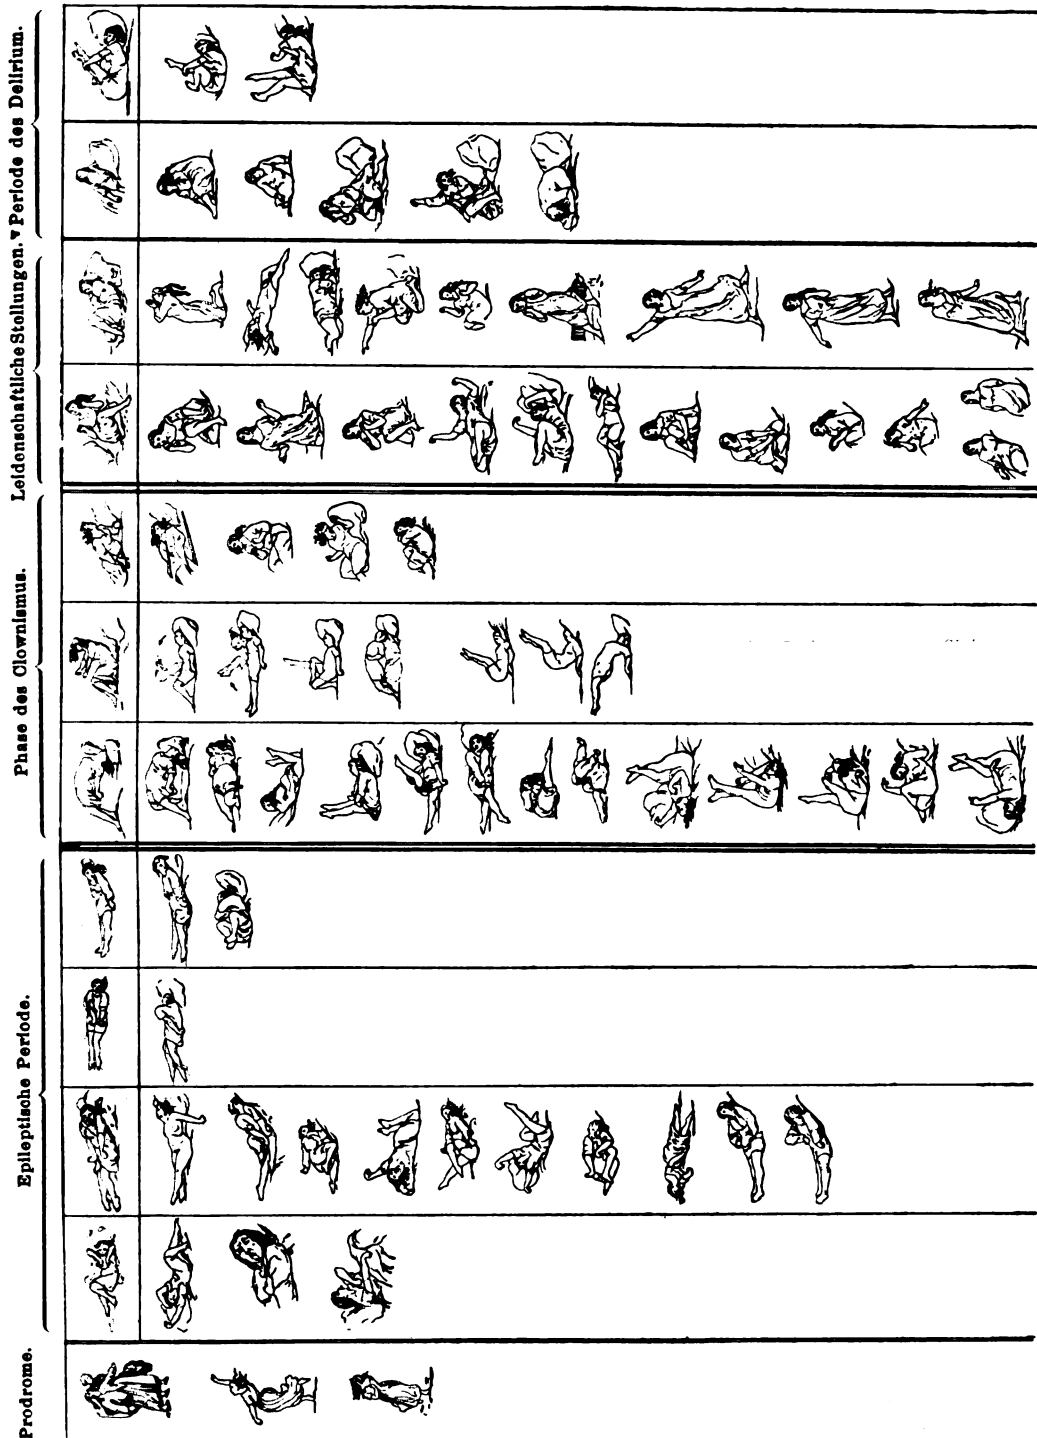 Prodrome.
Epileptische Periode.
Phase des Clownismus.
Leidenschaftliche Stellungen.
Periode des Delirium.